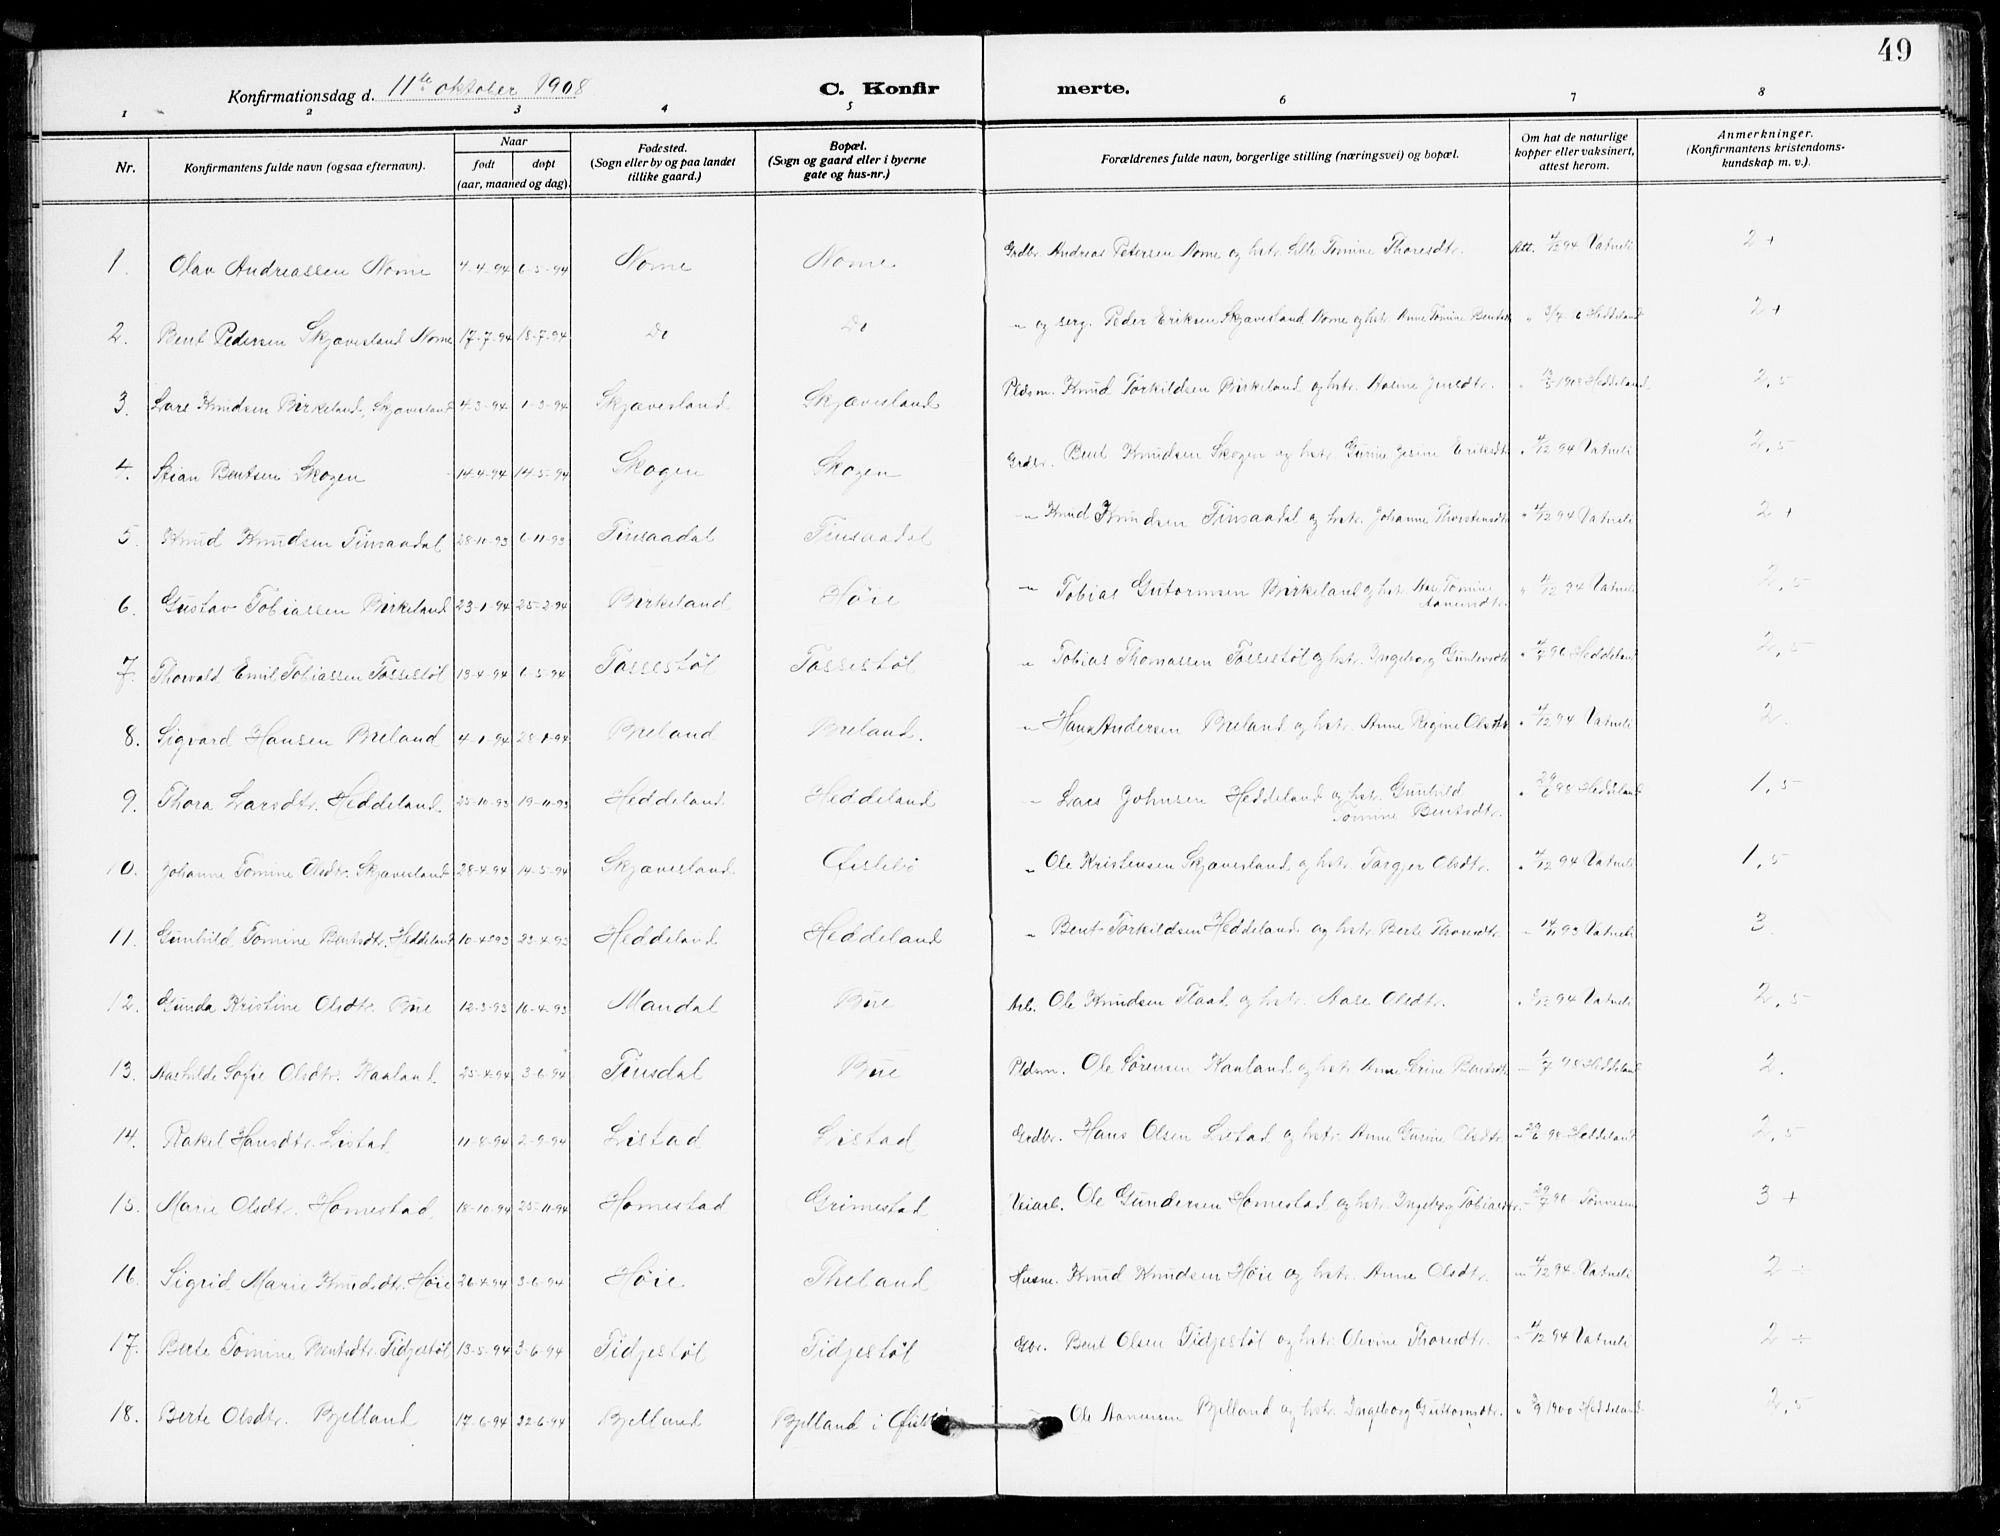 49
Konfirmationsdag d. 11te oktober 1908
C. Konfirmerte.
1 2 3 4 5 6 7 8
Nr. Konfirmantens fulde navn (ogsaa efternavn). Naar født døpt (aar, maaned og dag). Fødested. (Sogn eller by og paa landet tillike gaard.) Bopæl. (Sogn og gaard eller i byerne gate og hus-nr.) Forældrenes fulde navn, borgerlige stilling (næringsvei) og bopæl. Om hat de naturlige kopper eller vaksinert, attest herom. Anmerkninger. (Konfirmantens kristendoms-kundskap m. v.).
1. Olav Andreassen Nome 4-4-94 6-5-94 Nome Nome Grdbr. Andreas Petersen Nome og hstr. Tomine Thoresdtr. Att. 4/12 94 Vatneli 2+
2. Bent Pedersen Skjævesland Nome 17-7-94 18-7-94 Do Do " og serg. Peder Eriksen Skjævesland Nome og hstr. Anne Tomine Bentsdtr. " Heddeland 2+
3. Lars Knudsen Birkeland, Skjævesland 4-3-94 1-3-94 Skjævesland Skjævesland Pldsm. Knud Torkildsen Birkeland og hstr. Aaline Jensdtr. " Heddeland 2,5
4. Stian Bentsen Skogen 14-4-94 14-5-94 Skogen Skogen Grdbr. Bent Knudsen Skogen og hstr. Gurine Jesine Eriksdtr. " 4/12 94 Vatneli 2,5
5. Knud Knudsen Tinsaadal 28-10-93 6-11-93 Tinsaadal Tinsaadal " Knud Knudsen Tinsaadal og hstr. Johanne Thorstensdtr. " 4/12 94 Vatneli 2+
6. Gustav Tobiassen Birkeland 23-1-94 25-2-94 Birkeland Høie " Tobias Gutormsen Birkeland og hstr. Aase Tomine Aanensdtr. " 4/12 94 Vatneli 2,5
7. Thorvald Emil Tobiassen Tossestøl 13-4-94 6-5-94 Tossestøl Tossestøl " Tobias Thomassen Tossestøl og hstr. Ingeborg " 4/7 96 Heddeland 2,5
8. Sigvard Hansen Breland 4-1-94 28-1-94 Breland Breland. " Hans Andersen Breland og hstr. Anne Regine Olsdtr. " 4/12 94 Vatneli 2.
9. Thora Larsdtr. Heddeland. 25-10-93 19-11-93 Heddeland Heddeland " Lars Johnsen Heddeland og hstr. Gunhild Tomine Bentsdtr. " 29/6 98 Heddeland 1,5
10. Johanne Tomine Olsdtr. Skjævesland 28-4-94 14-5-94 Skjævesland Øislebø " Ole Kristensen Skjævesland og hstr. Targjer Olsdtr. " 4/12 94 Vatneli 1,5
11. Gunhild Tomine Bentsdtr. Heddeland 10-4-93 23-4-93 Heddeland Heddeland " Bent Torkildsen Heddeland og hstr. Berte Thorsdtr. " 14/11 93 Vatneli 3.
12. Gunda Kristine Olsdtr. Bue 12-3-93 16-4-93 Mandal Bue Arb. Ole Knudsen Flaat og hstr. Aase Olsdtr. " 94 Vatneli 2,5
13. Mathilde Sofie Olsdtr. Kaaland. 25-4-94 3-6-94 Tinsdal Bue Pldsm. Ole Sørensen Kaaland og hstr. Anne Serine Bentsdtr. " 98 Heddeland 2.
14. Rakel Hansdtr. Listad 11-8-94 2-9-94 Listad Listad Grdbr. Hans Olsen Listad og hstr. Anne Gurine Olsdtr. " 29/6 98 Heddeland 2,5
15. Marie Olsdtr. Homestad, 18-10-94 25-11-94 Homestad Grimestad Veiarb. Ole Gundersen Homestad og hstr. Ingeborg Tobiasdtr. " 29/7 96 3+
16. Sigrid Marie Knudsdtr. Høie 26-4-94 3-6-94 Høie Theland Husm. Knud Knudsen Høie og hstr. Anne Olsdtr. " 4/12 94 Vatneli 2÷
17. Berte Tomine Bentsdtr. Tidjestøl 13-5-94 3-6-94 Tidjestøl Tidjestøl Gbr. Bent Olsen Tidjestøl og hstr. Olevine Thoresdtr. " 4/12 94 Vatneli 2÷
18. Berte Olsdtr. Bjelland 17-6-94 22-6-94 Bjelland Bjelland i " Ole Aanensen Bjelland og hstr. Ingeborg Guttormsdtr. " 1900 Heddeland 2,5